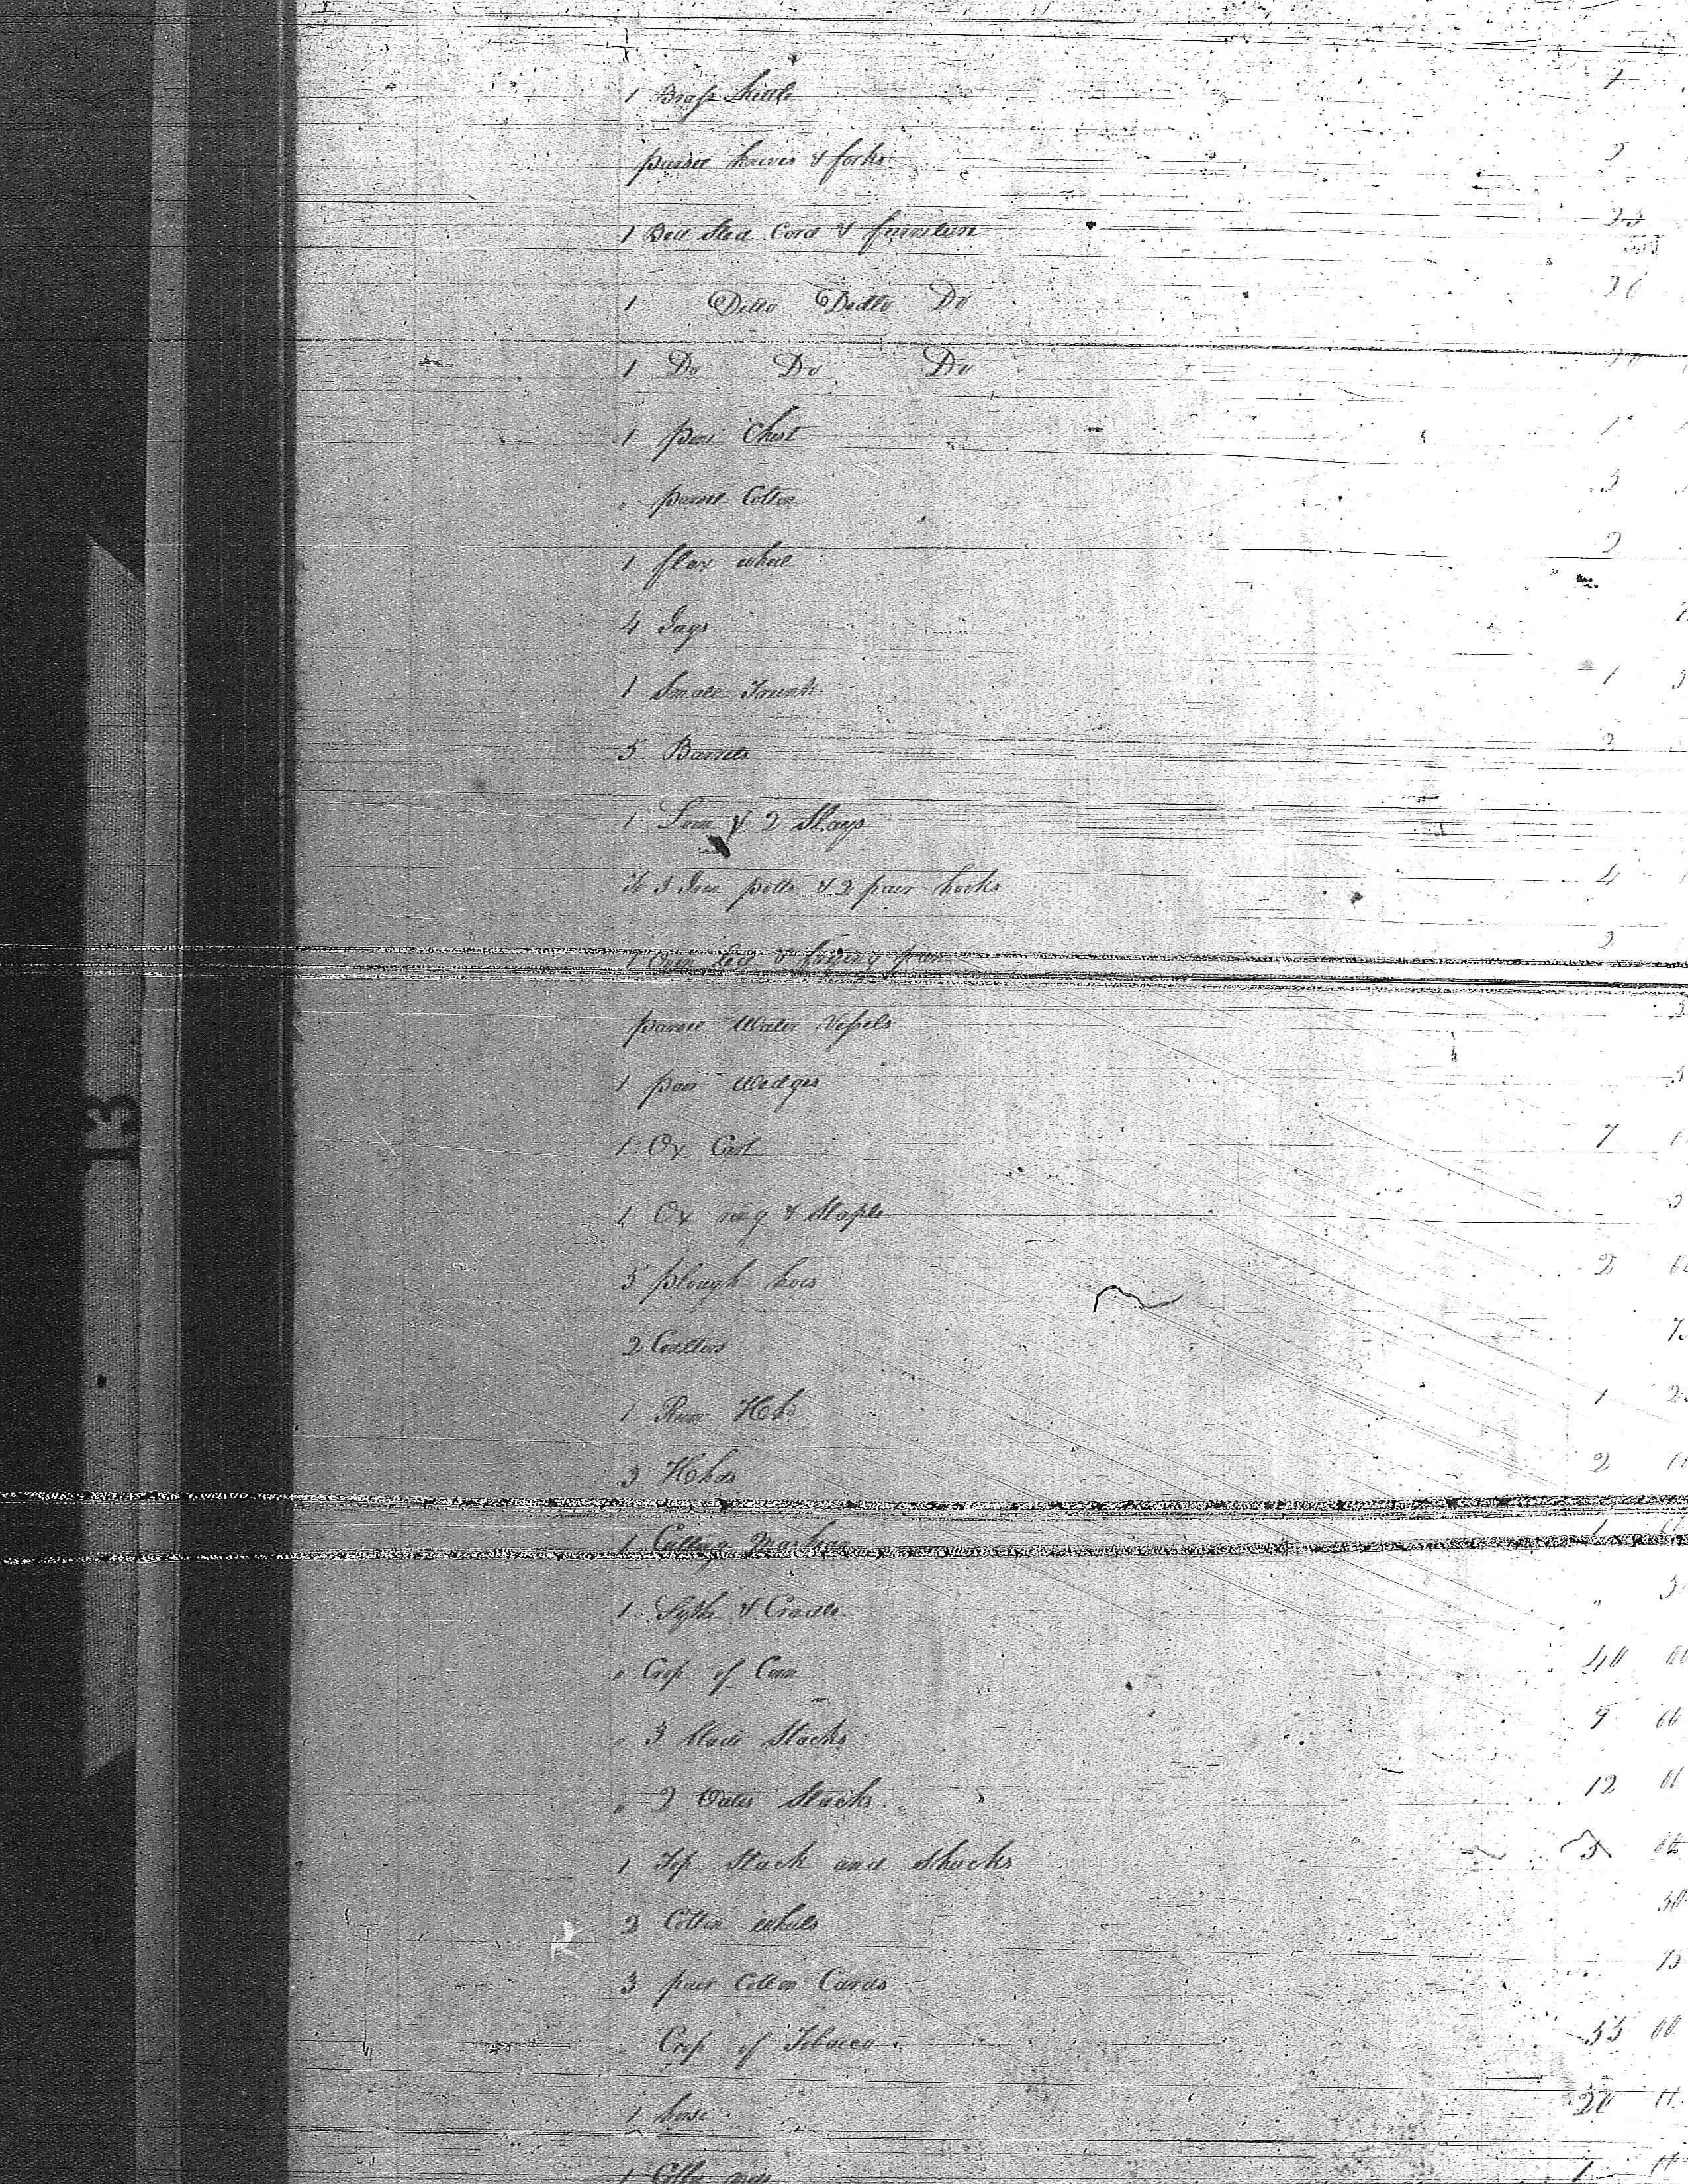 1 Brass Kittle 1
parsel knives & forks 2
1 Bed sted Cord & furniture 25
1 Ditto Ditto Do 20
1 Do Do Do 20
1 pine Chest 1
" parsel Cotton 3
1 flax wheel 2
4 Jugs
1 Small Trunk 1
5 Barrels 2
1 Loom & 2 Slays
To 3 Iron potts & 2 pair hooks 4
1 Oven Led & frying pan 2
parsel Water Vessels
1 pair Wedges
1 Ox Cart 7
1 Ox ring & Staple
5 plough hoes 2
2 Coulters
1 Rum Hhd 1
3 Hhds 2
1 Cutting 1
1 Sythe & Cradle "
" Crop of Corn 40 00
" 3 blade Stacks 9 00
" 2 Oates Stacks 12 00
1 Top Stack and Shucks 3 00
2 Cotton wheels 50
3 pair Cotton Cards 75
" Crop of Tobacco 55 00
1 horse 20
1 1
13